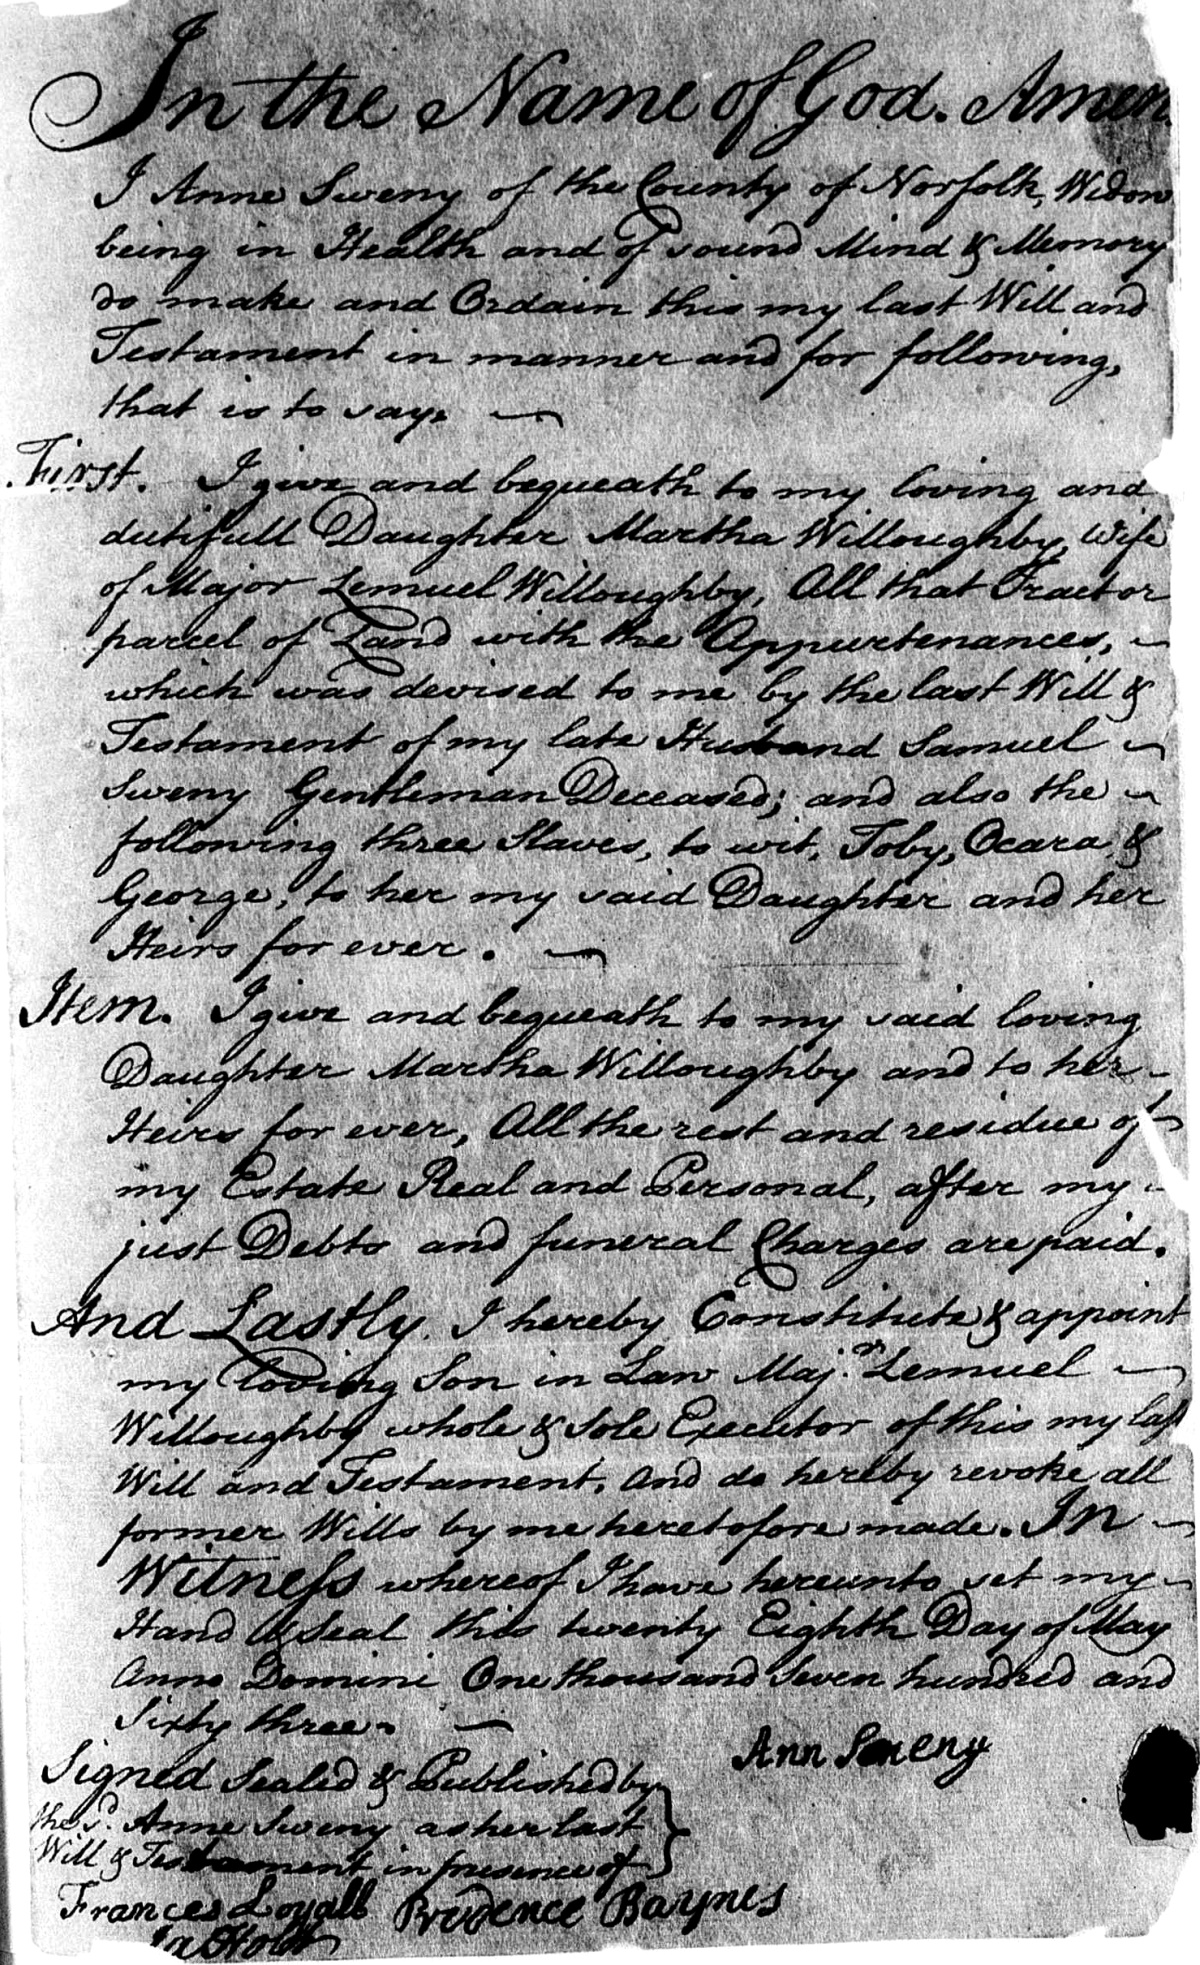 In the Name of God. Amen.
I Anne Sweny of the County of Norfolk, Widow
being in Health and of sound Mind & Memory
do make and Ordain this my last Will and
Testament in manner and for following,
that is to say,
First. I give and bequeath to my loving and
dutifull Daughter Martha Willoughby, wife
of Major Lemuel Willoughby, All that Tract or
parcel of Land with the Appurtenances,
which was devised to me by the last Will &
Testament of my late Husband Samuel
Sweny Gentleman Deceased; and also the
following three Slaves, to wit, Toby, Ocara &
George, to her my said Daughter and her
Heirs for ever.
Item. I give and bequeath to my said loving
Daughter Martha Willoughby and to her
Heirs for ever, All the rest and residue of
my Estate Real and Personal, after my
just Debts and funeral Charges are paid.
And Lastly. I hereby Constitute & appoint
my loving Son in Law Maj.r Lemuel
Willoughby whole & Sole Executor of this my last
Will and Testament, and do hereby revoke all
former Wills by me heretofore made. In
Witness whereof I have hereunto set my
Hand & Seal this twenty Eighth Day of May
Anno Domini One thousand Seven hundred and
Sixty three.
Ann Sweny
Signed Sealed & Published by
the sd. Anne Sweny as her last
Will & Testament in presence of
Frances Loyall Prudence Baynes
Ja Holt